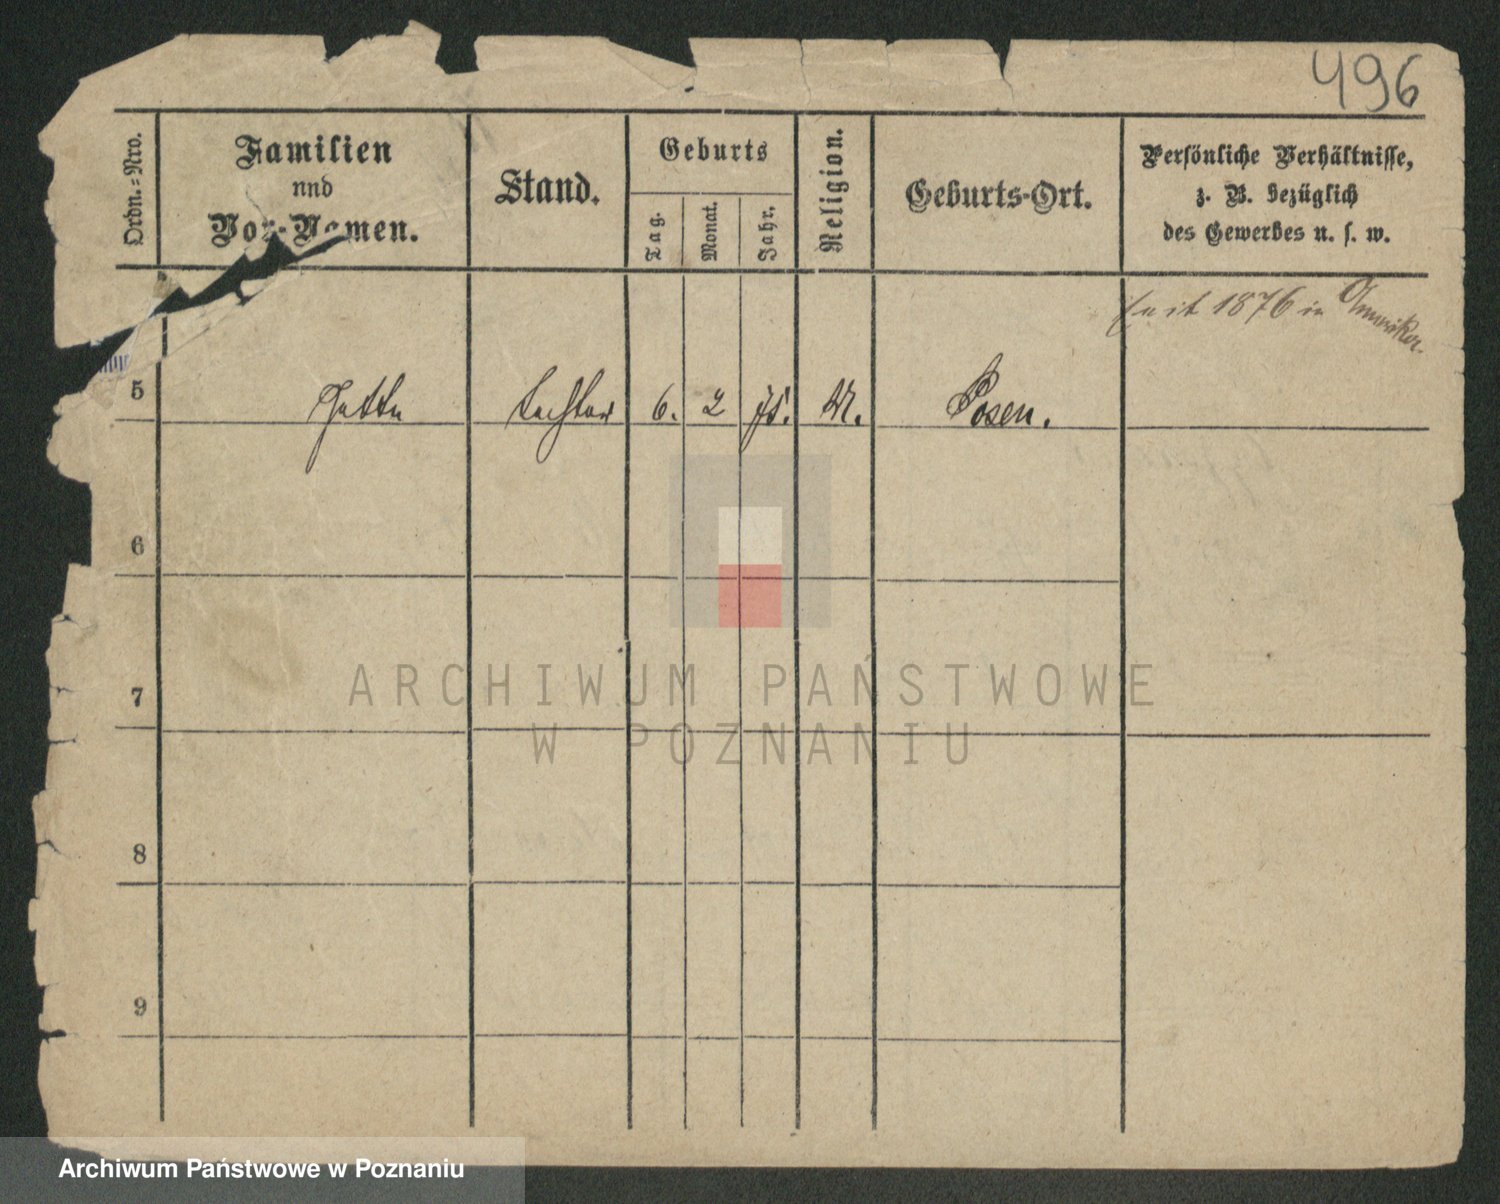 496
Ordn.=Nro.
Familien
und
Vor-Namen.
Stand.
Geburts
Tag.
Monat.
Jahr.
Religion.
Geburts-Ort.
Persönliche Verhältnisse,
z. B. bezüglich
des Gewerbes u. s. w.
seit 1876 in Amerika.
5 Jette Tochter 6. 2 M. Posen.
6
7
8
9
ARCHIWUM PAŃSTWOWE
W POZNANIU
Archiwum Państwowe w Poznaniu